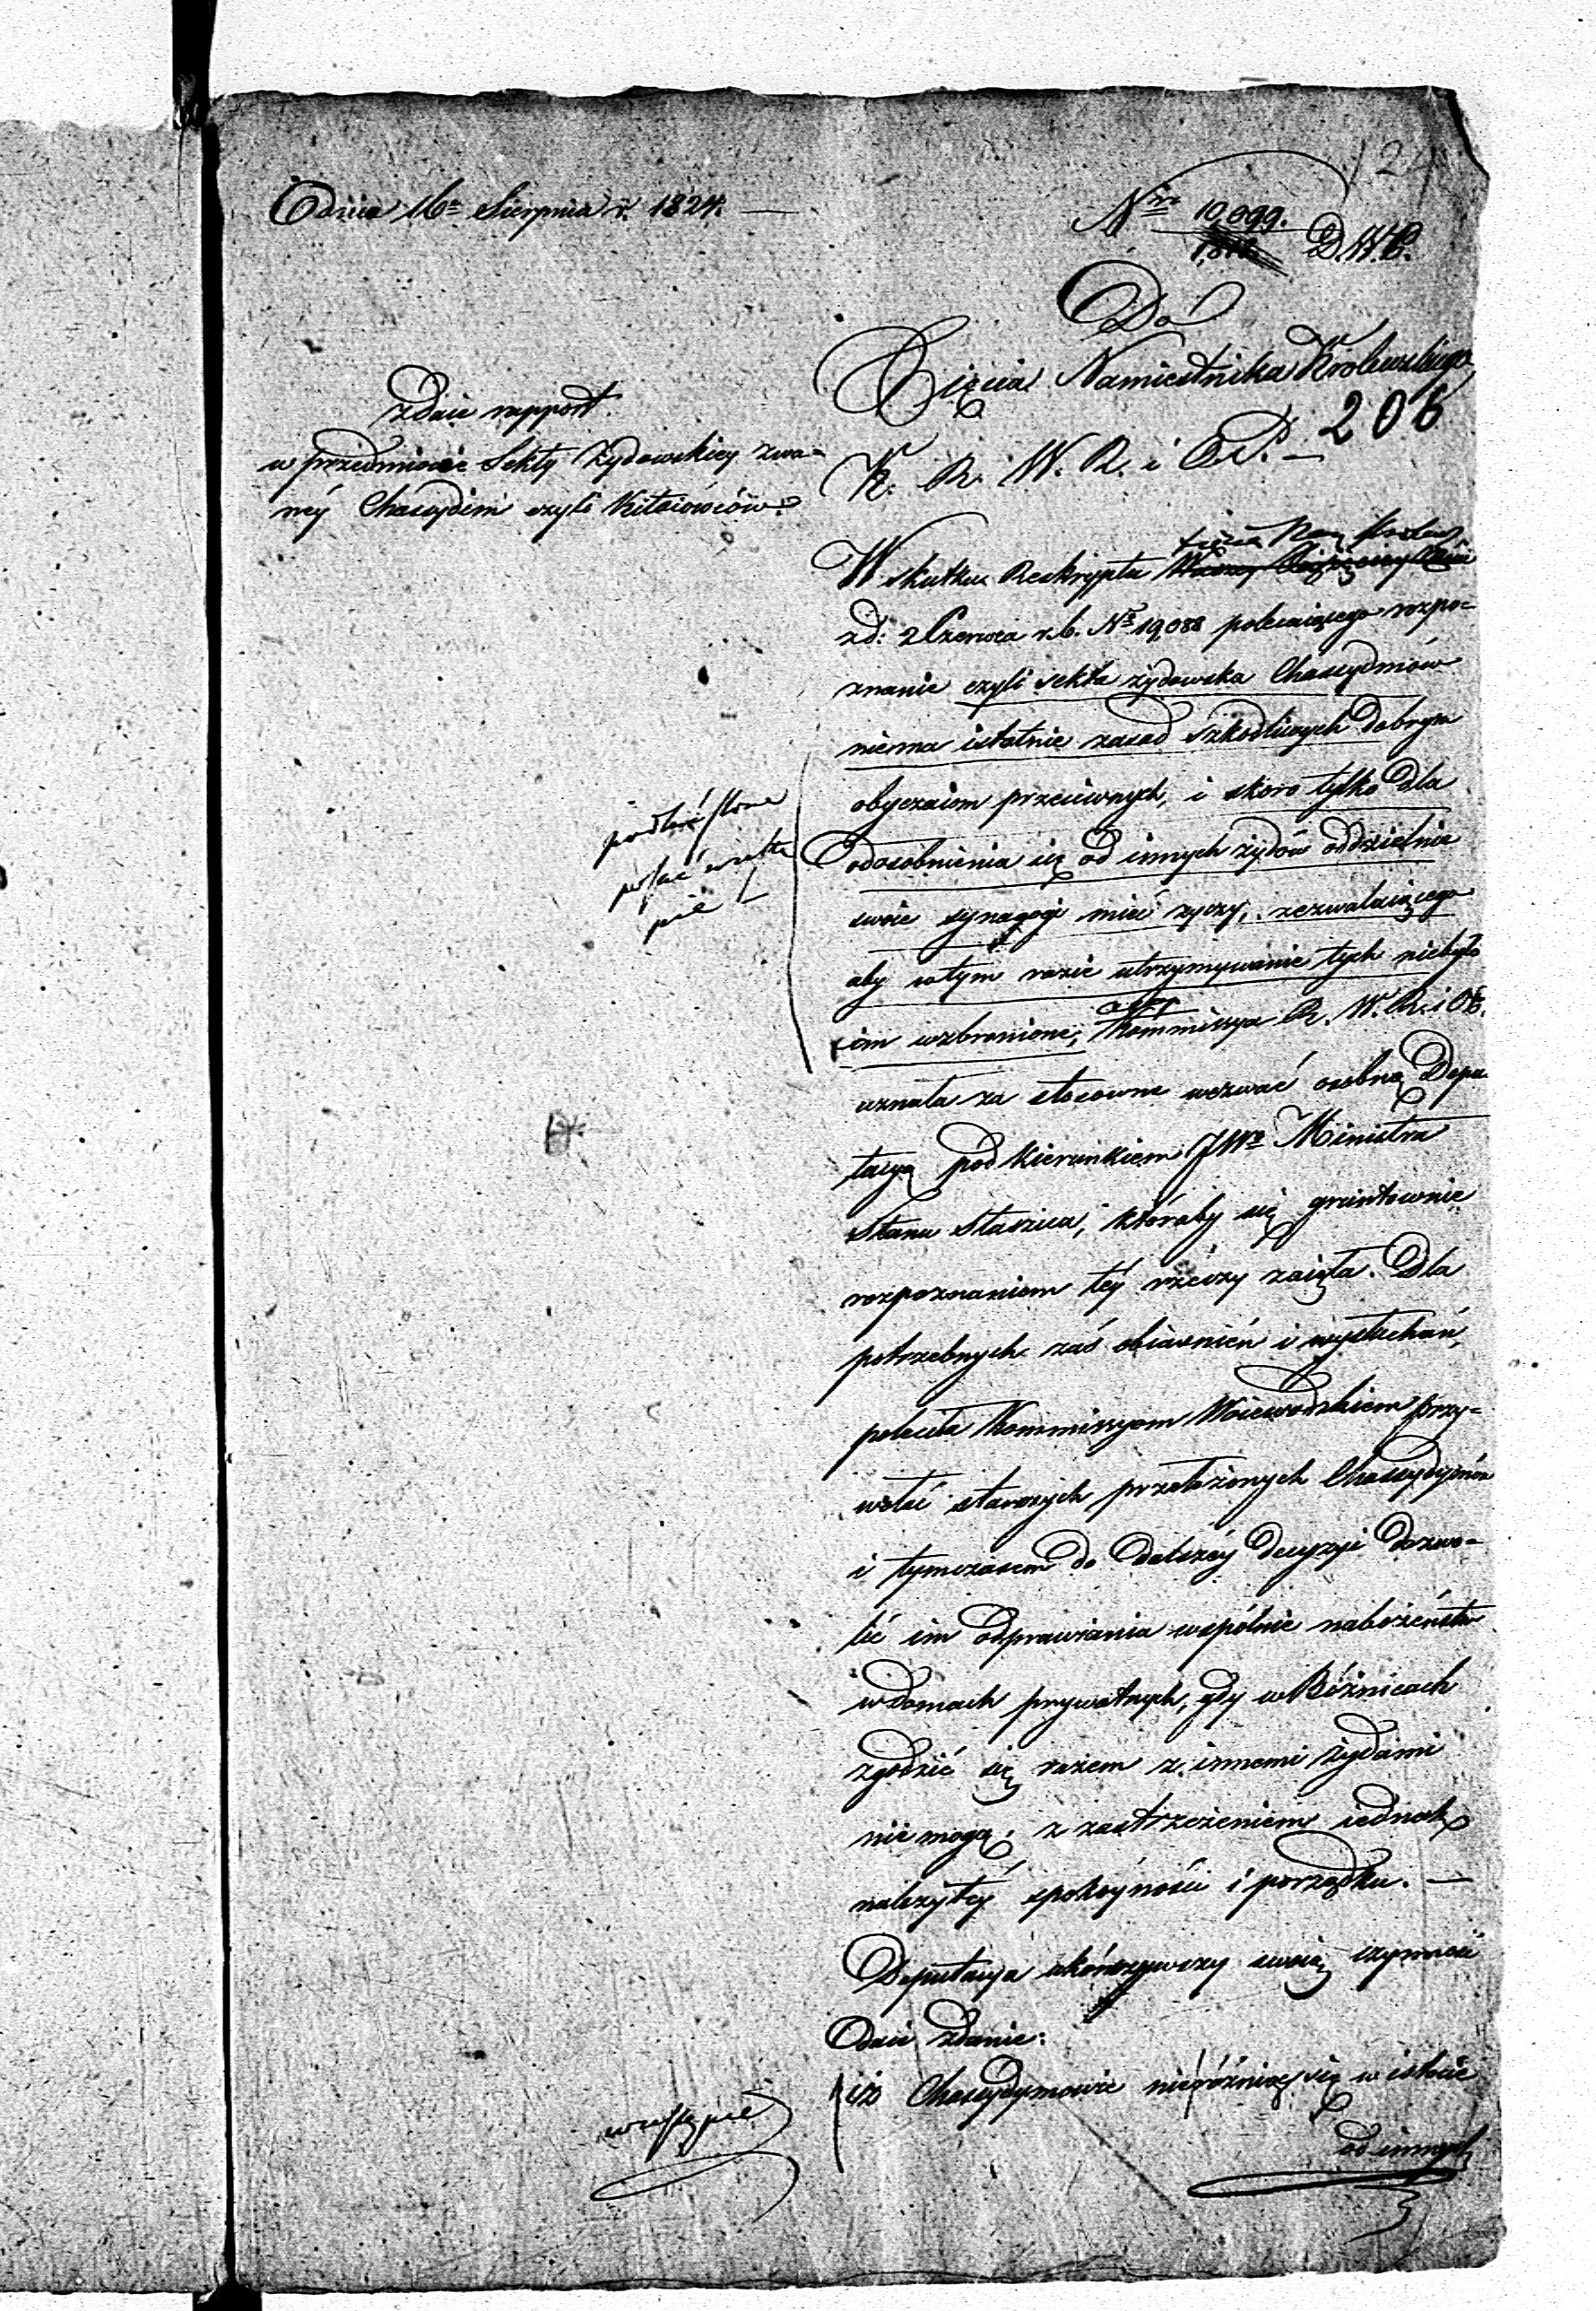 Dnia 16º Sierpnia r. 1824.
124
Nro 10,099.
D.W.P.
Do
Xięcia Namiestnika Królewskiego
206
K. R. W. R. i O. P.
zdaie rapport
w przedmiocie Sekty Żydowskiey zwa=
néy Chassydim czyli Kitaiowców.
W skutku Reskryptu Xięcia Nam Królew
zd: 2 Czerwca r.b. Nº 19088 polecaiącego rozpo=
znanie czyli sekta żydowska Chassydmów
niema istotnie zasad szkodliwych dobrym
obyczaiom przeciwnych, i skoro tylko dla
odosobnienia się od innych żydów oddzielnie
swoie synagogi mieć życzy, zezwalaiącego
aby w tym razie utrzymywanie tych niebyło
im wzbronione; Kommissya R. W. R. i O.P.
uznała za stosowne wezwać osobną Depu
tacyą pod kierunkiem JWº Ministra
Stanu Staszica, któraby się gruntownie
rozpoznaniem téy rzeczy zaięła. Dla
potrzebnych zaś obiaśnień i wysłuchań,
poleciła Kommissyom Woiewodzkiem przy=
wołać starszych przełożonych Chassydymów
i tymczasem do dalszéy decyzyi dozwo=
lić im odprawiania wspólnie nabożeństw
w domach prywatnych, gdy w Bóżnicach
zgodzić się razem z innemi żydami
nie mogą, z zastrzeżeniem iednak
należytéy spokoyności i porządku. —
Deputacya ukończywszy swoią czynność
Daie zdanie:
iż Chassydymowie nieróżnią się w istocie
od innych
podkreślone
wstępie